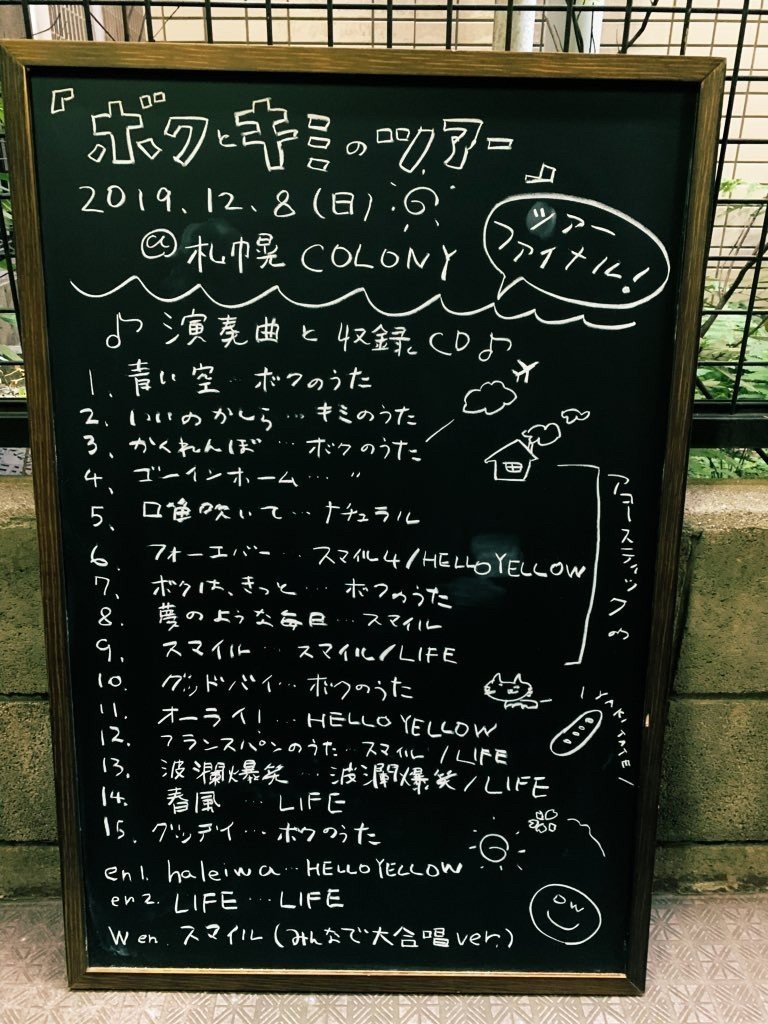 『ボクとキミのツアー』
2019.12.8(日)
@札幌 COLONY
ツアー
ファイナル!
♪ 演奏曲と収録CD♪
1. 青い空…ボクのうた
2. いいのかしら…キミのうた
3. かくれんぼ…ボクのうた
4. ゴーインホーム…〃
5. 口笛吹いて…ナチュラル
6. フォーエバー…スマイル4/HELLO YELLOW
7. ボクは、きっと…ボクのうた
8. 夢のような毎日…スマイル
9. スマイル…スマイル/LIFE
アコースティックの
10. グッドバイ…ボクのうた
11. オーライ!…HELLO YELLOW
12. フランスパンのうた…スマイル/LIFE
YAKITATE!
13. 波瀾爆笑…波瀾爆笑/LIFE
14. 春風…LIFE
15. グッデイ…ボクのうた
en1. haleiwa…HELLO YELLOW
en2. LIFE…LIFE
W en. スマイル(みんなで大合唱ver.)